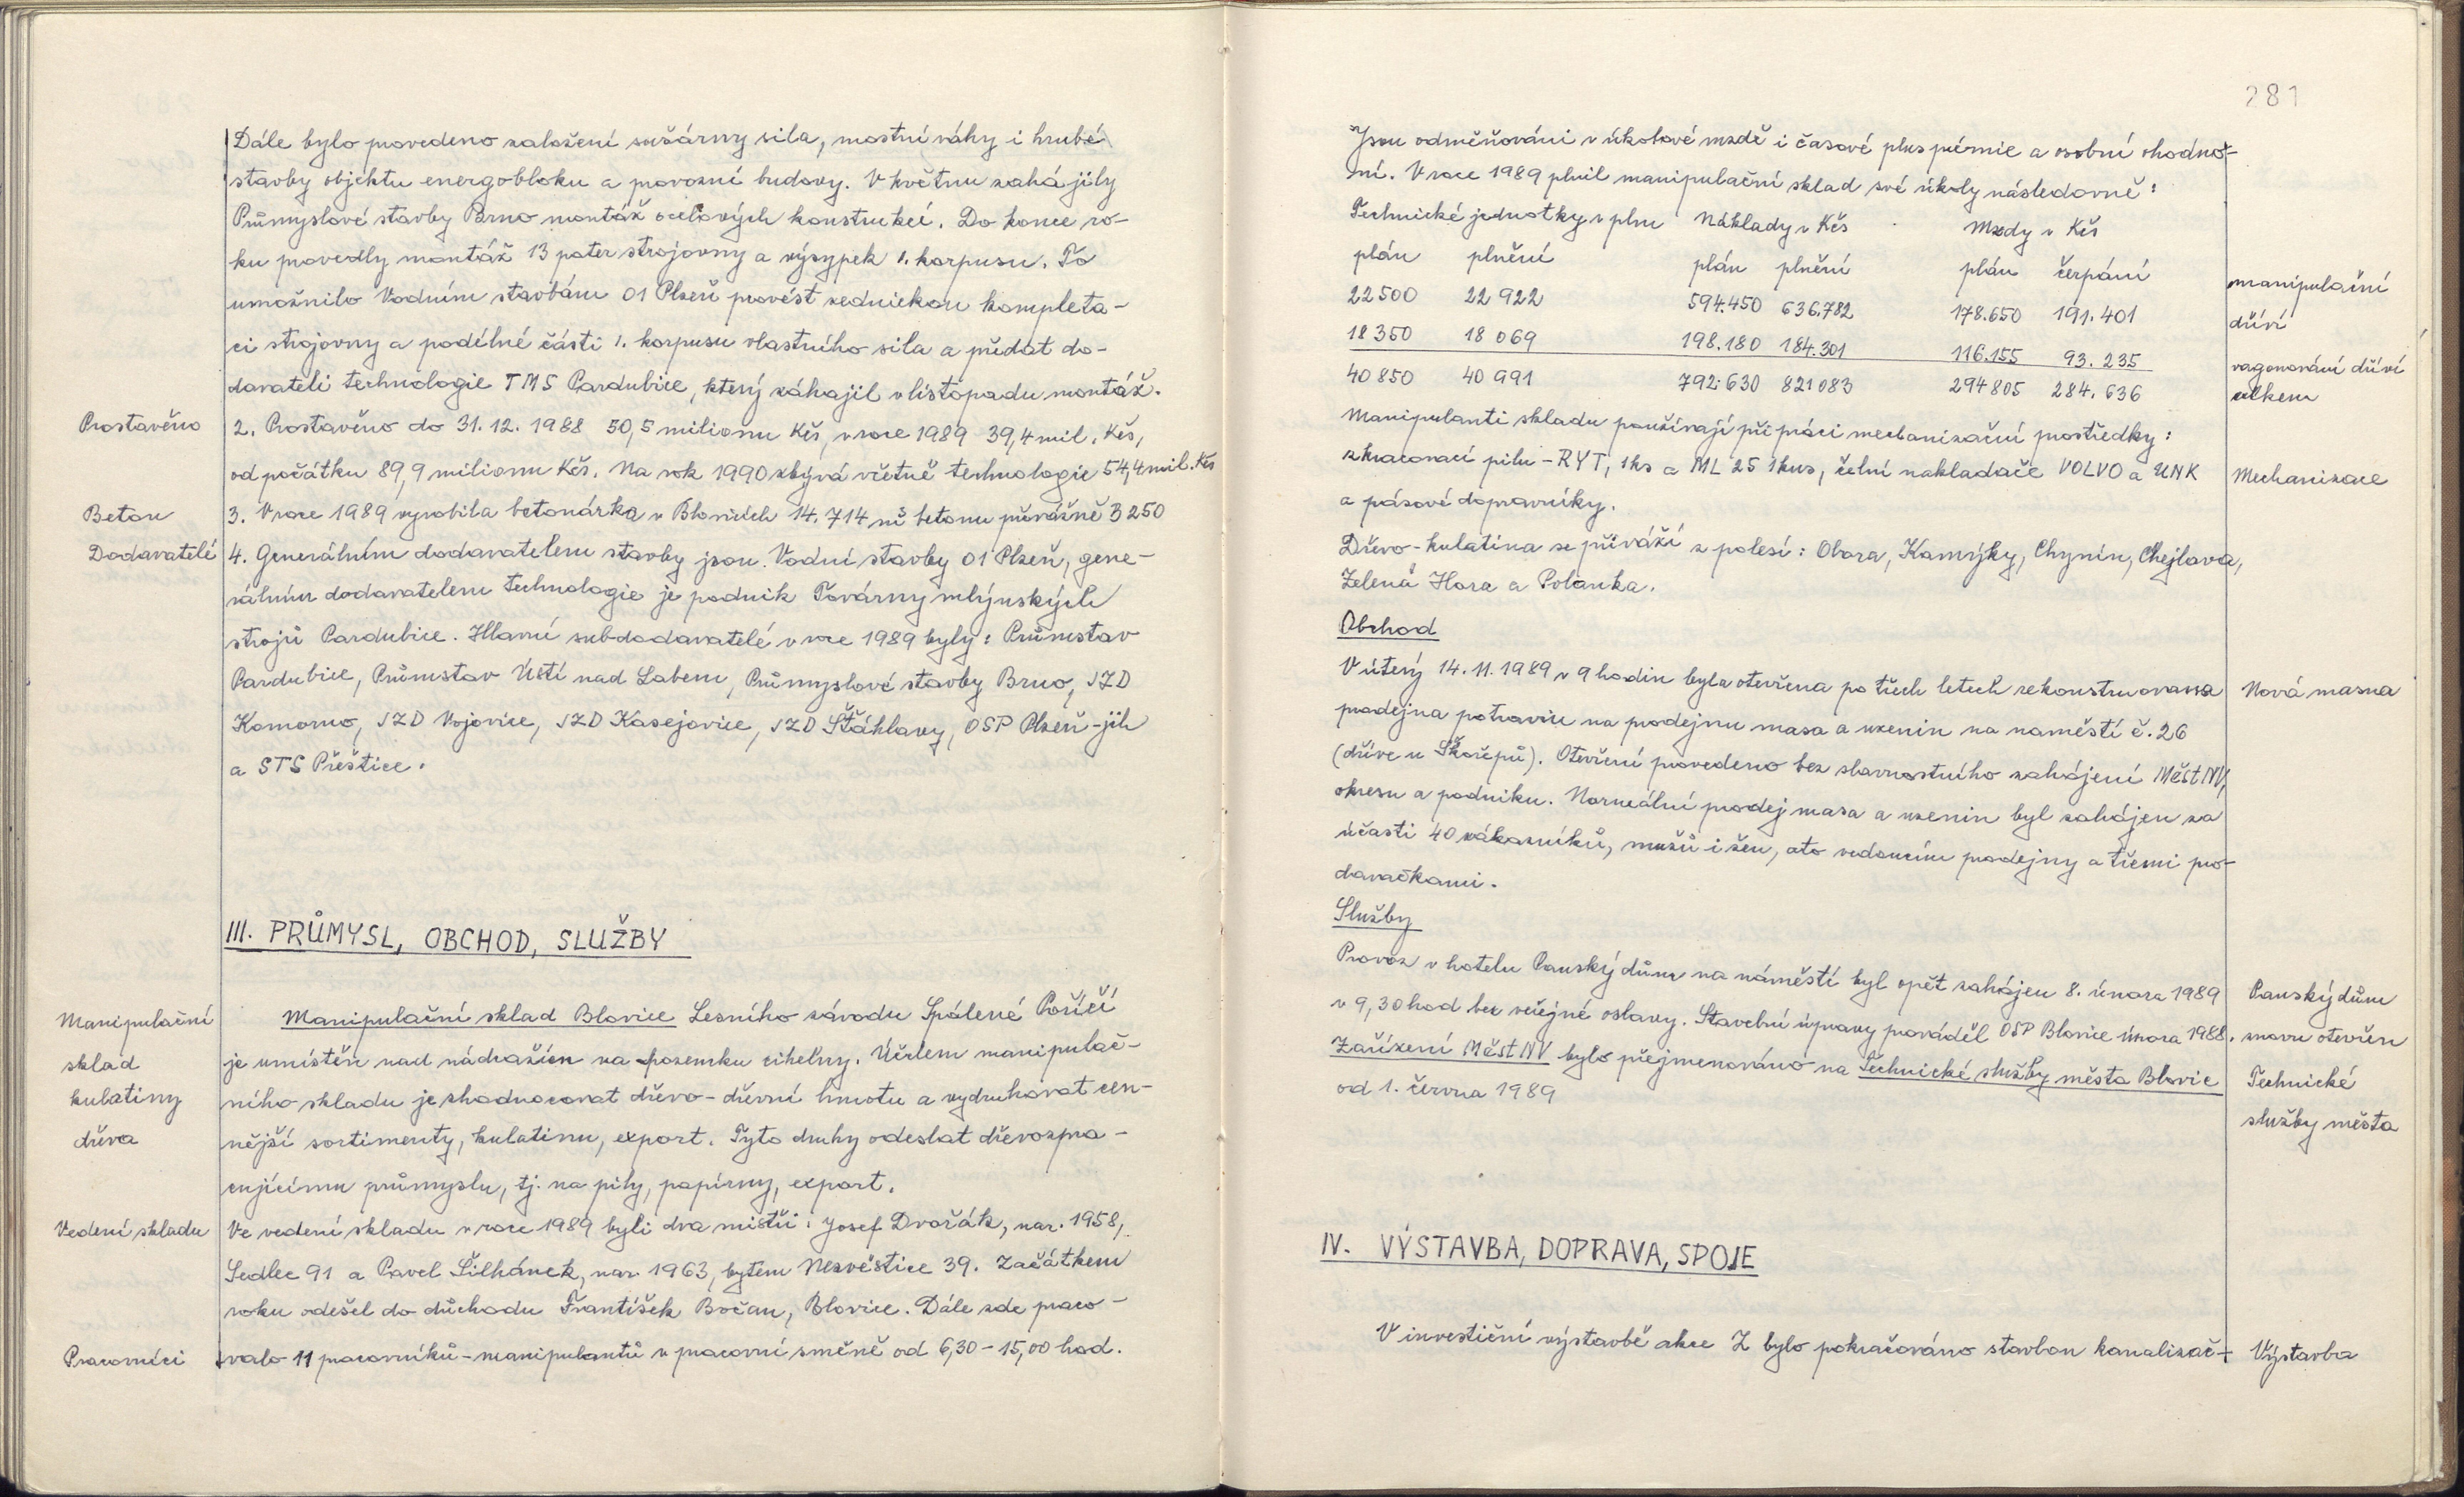 Dále bylo provedeno založení sušárny sila, mostní váhy i hrubé
stavby objektu energobloku a provozní budovy. V květnu zahájily
Průmyslové stavby Brno montáž ocelových konstrukcí. Do konce ro-
ku provedly montáž 13 pater strojovny a výsypek 1. korpusu. To
umožnilo Vodním stavbám 01 Plzeň provést zednickou kompleta-
ci strojovny a podélné části 1. korpusu vlastního sila a předat do-
davateli technologie TMS Pardubice, který záhajil v listopadu montáž.
Prostavěno
2. Prostavěno do 31. 12. 1988 50,5 milionu Kčs, v roce 1989 39,4 mil. Kčs,
od počátku 89,9 milionu Kčs. Na rok 1990 zbývá včetně technologie 54,4 mil. Kčs
Beton
3. V roce 1989 vyrobila betonárka v Blovicích 14.714 m3 betonu převážně B 250
Dodavatelé
4. Generálním dodavatelem stavby jsou Vodní stavby 01 Plzeň, gene-
rálním dodavatelem technologie je podnik Továrny mlýnských
strojů Pardubice. Hlavní subdodavatelé v roce 1989 byly: Průmstav
Pardubice, Průmstav Ústí nad Labem, Průmyslové stavby Brno, JZD
Komorno, JZD Vojovice, JZD Kasejovice, JZD Šťáhlavy, OSP Plzeň-jih
a STS Přeštice.
III. PRŮMYSL, OBCHOD, SLUŽBY
Manipulační
sklad
kulatiny
dřeva
Manipulační sklad Blovice Lesního závodu Spálené Poříčí
je umístěn nad nádražím na pozemku cihelny. Účelem manipulač-
ního skladu je zhodnocovat dřevo - dřevní hmotu a vydruhovat cen-
nější sortimenty, kulatinu, export. Tyto druhy odeslat dřevozpra-
cujícímu průmyslu, tj. na pily, papírny, export.
Vedení skladu
Ve vedení skladu v roce 1989 byli dva mistři: Josef Dvořák, nar. 1958,
Sedlec 91 a Pavel Šilhánek, nar. 1963, bytem Nezvěstice 39. Začátkem
roku odešel do důchodu František Bočan, Blovice. Dále zde praco-
Pracovníci
valo 11 pracovníků - manipulantů v pracovní směně od 6,30 - 15,00 hod.
281
Jsou odměňováni v úkolové mzdě i časové plus prémie a osobní ohodno-
ní. V roce 1989 plnil manipulační sklad své úkoly následovně:
Technické jednotky v plm Náklady v Kčs Mzdy v Kčs
plán plnění plán plnění plán čerpání
22 500 22 922 594.450 636.782 178.650 191.401 manipulační dříví
18 350 18 069 198.180 184.301 116.155 93.235 vagonování dříví
40 850 40 991 792.630 821 083 294 805 284.636 celkem
Manipulanti skladu používají při práci mechanizační prostředky:
zkracovací pilu - RYT, 1ks a ML 25 1kus, čelní nakladače VOLVO a UNK
Mechanizace
a pásové dopravníky.
Dřevo - kulatina se přiváží z polesí: Obora, Kamýky, Chynín, Chejlava,
Zelená Hora a Polanka.
Obchod
V úterý 14. 11. 1989 v 9 hodin byla otevřena po třech letech rekonstruovaná
Nová masna
prodejna potravin na prodejnu masa a uzenin na naměstí č. 26
(dříve u Škořepů). Otevření provedeno bez slavnostního zahájení MěstNV,
okresu a podniku. Normální prodej masa a uzenin byl zahájen za
účasti 40 zákazníků, mužů i žen, a to vedoucím prodejny a třemi pro-
davačkami.
Služby
Provoz v hotelu Panský dům na náměstí byl opět zahájen 8. února 1989
Panský dům
v 9,30 hod bez veřejné oslavy. Stavební úpravy prováděl OSP Blovice února 1988.
znovu otevřen
Zařízení MěstNV bylo přejmenováno na Technické služby města Blovic
Technické
služby města
od 1. června 1989
IV. VÝSTAVBA, DOPRAVA, SPOJE
V investiční výstavbě akce Z bylo pokračováno stavbou kanalizač-
Výstavba